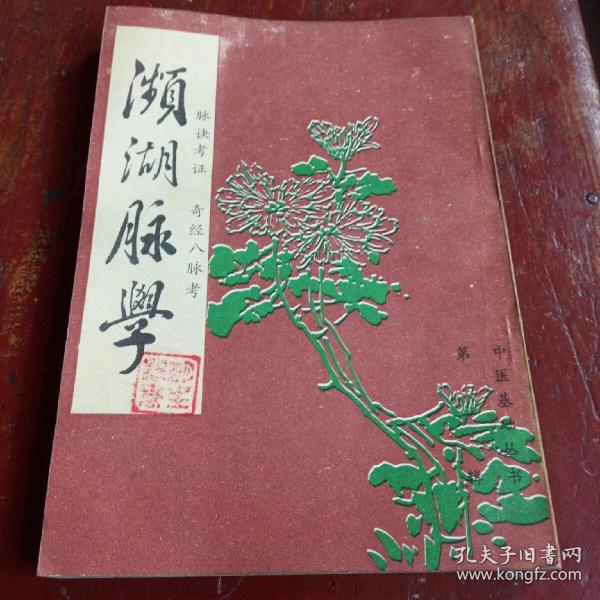 瀕湖脉學
脉诀考证 奇经八脉考
中医基础丛书
第 辑
孔夫子旧书网
www.kongfz.com